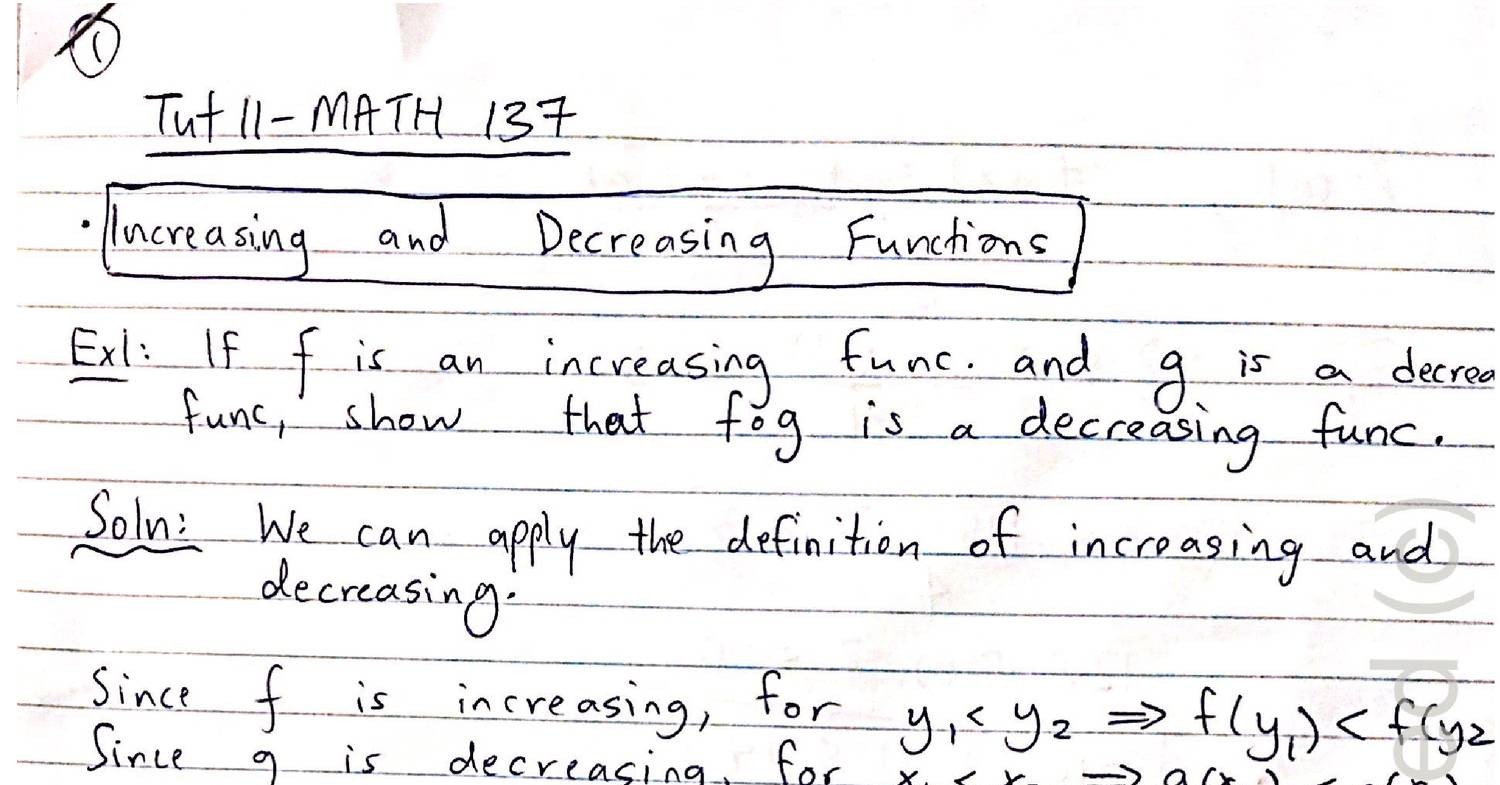 ①
Tut 11 - MATH 137
· Increasing and Decreasing Functions
Ex1: If f is an increasing func. and g is a decrea
func, show that fog is a decreasing func.
Soln: We can apply the definition of increasing and
decreasing.
Since f is increasing, for y₁ < y₂ ⇒ f(y₁) < f(y₂
Since g is decreasing, for x₁ <
(c)